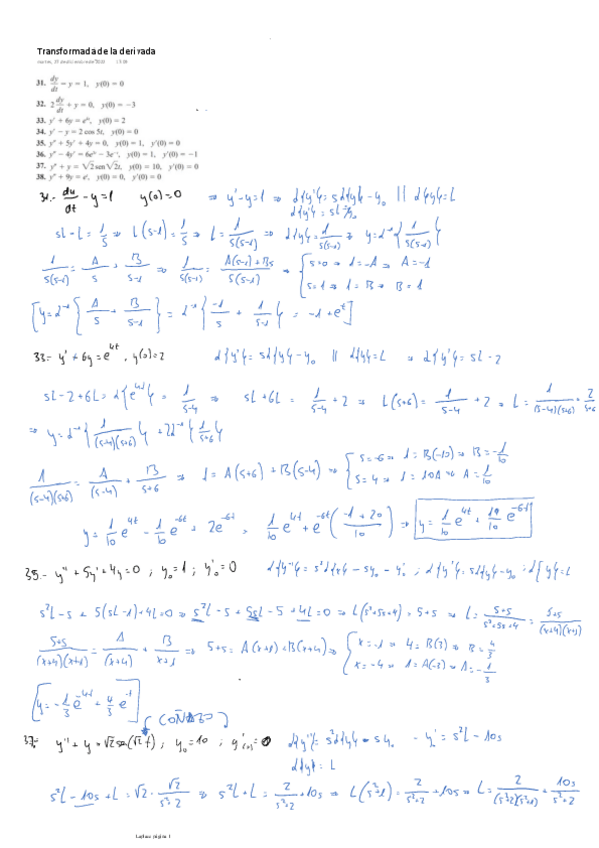 Transformada de la derivada
31. dy/dt − y = 1, y(0) = 0
32. 2 dy/dt + y = 0, y(0) = −3
33. y' + 6y = e^{4t}, y(0) = 2
34. y' − y = 2 cos 5t, y(0) = 0
35. y'' + 5y' + 4y = 0, y(0) = 1, y'(0) = 0
36. y'' − 4y' = 6e^{3t} − 3e^{−t}, y(0) = 1, y'(0) = −1
37. y'' + y = √2 sen √2t, y(0) = 10, y'(0) = 0
38. y'' + 9y = e^t, y(0) = 0, y'(0) = 0
dy/dt − y = 1 y(0) = 0 ⇒ y' − y = 1 ⇒ L{y'} = sL{y} − y₀ || L{y} = L
L{y'} = sL − y₀
sL − L = 1/s ⇒ L(s−1) = 1/s ⇒ L = 1/s(s−1) ⇒ L{y} = 1/s(s−1) ⇒ y = L⁻¹{1/s(s−1)}
1/s(s−1) = A/s + B/s−1 ⇒ 1/s(s−1) = A(s−1) + Bs/s(s−1) ⇒ { s=0 ⇒ 1 = −A ⇒ A = −1
s=1 ⇒ 1 = B ⇒ B = 1
[y = L⁻¹{A/s + B/s−1} = L⁻¹{−1/s + 1/s−1} = −1 + e^t]
33.- y' + 6y = e^{4t}, y(0) = 2 L{y'} = sL{y} − y₀ || L{y} = L ⇒ L{y'} = sL − 2
sL − 2 + 6L = L{e^{4t}} = 1/s−4 ⇒ sL + 6L = 1/s−4 + 2 ⇒ L(s+6) = 1/s−4 + 2 ⇒ L = 1/(s−4)(s+6) + 2/s+6
⇒ y = L⁻¹{1/(s−4)(s+6)} + 2L⁻¹{1/s+6}
1/(s−4)(s+6) = A/(s−4) + B/s+6 ⇒ 1 = A(s+6) + B(s−4) ⇒ { s=−6 ⇒ 1 = B(−10) ⇒ B = −1/10
s=4 ⇒ 1 = 10A ⇒ A = 1/10
y = 1/10 e^{4t} − 1/10 e^{−6t} + 2e^{−6t} = 1/10 e^{4t} + e^{−6t}(−1+20/10) ⇒ y = 1/10 e^{4t} + 19/10 e^{−6t}
35.- y'' + 5y' + 4y = 0 ; y₀ = 1 ; y'₀ = 0 L{y''} = s²L{y} − sy₀ − y'₀ ; L{y'} = sL{y} − y₀ ; L{y} = L
s²L − s + 5(sL − 1) + 4L = 0 ⇒ s²L − s + 5sL − 5 + 4L = 0 ⇒ L(s²+5s+4) = s+5 ⇒ L = s+5/s²+5s+4 = s+5/(x+4)(x+1)
s+5/(x+4)(x+1) = A/(x+4) + B/x+1 ⇒ s+5 = A(x+1) + B(x+4) ⇒ { x=−1 ⇒ 4 = B(3) ⇒ B = 4/3
x=−4 ⇒ 1 = A(−3) ⇒ A = −1/3
[y = −1/3 e^{−4t} + 4/3 e^{−t}]
37.- y'' + y = √2 sen(√2 t) ; y₀ = 10 ; y'(0) = 0 L{y''} = s²L{y} − sy₀ − y' = s²L − 10s
L{y} = L
s²L − 10s + L = √2 · √2/s²+2 ⇒ s²L + L = 2/s²+2 + 10s ⇒ L(s²+1) = 2/s²+2 + 10s ⇒ L = 2/(s²+2)(s²+1) + 10s/s²+2
Laplace página 1